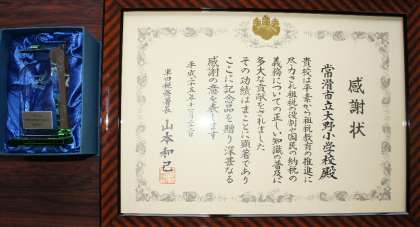 感謝状
常滑市立大野小学校殿
貴校は平素から租税教育の推進に
尽力され租税の役割や国民の納税の
義務についての正しい知識の普及に
多大な貢献をされました
その功績はまことに顕著であり
ここに記念品を贈り深甚なる
感謝の意を表します
平成二十五年十一月
半田税務署長 山本和己